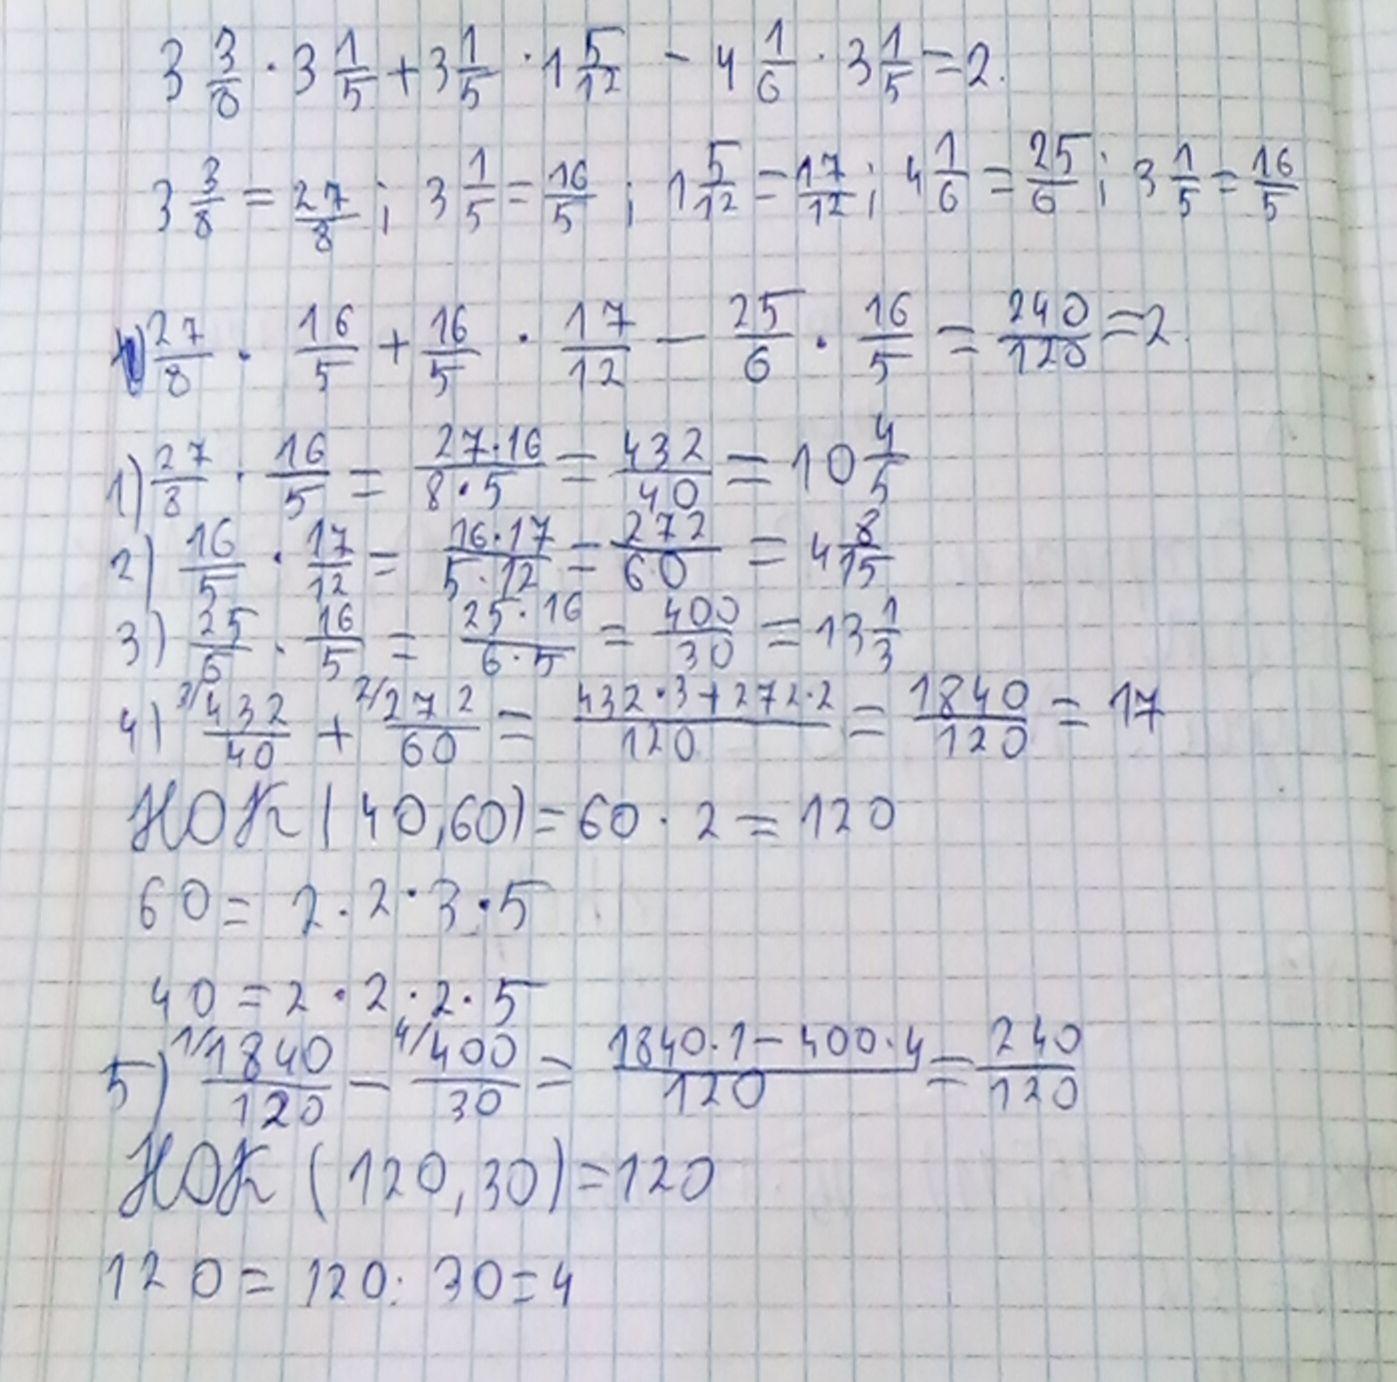 3 3/8 · 3 1/5 + 3 1/5 · 1 5/12 - 4 1/6 · 3 1/5 = 2.
3 3/8 = 27/8 ; 3 1/5 = 16/5 ; 1 5/12 = 17/12 ; 4 1/6 = 25/6 ; 3 1/5 = 16/5
27/8 · 16/5 + 16/5 · 17/12 - 25/6 · 16/5 = 240/120 = 2.
1) 27/8 · 16/5 = 27·16/8·5 = 432/40 = 10 4/5
2) 16/5 · 17/12 = 16·17/5·12 = 272/60 = 4 8/15
3) 25/6 · 16/5 = 25·16/6·5 = 400/30 = 13 1/3
4) 3/ 432/40 + 2/ 272/60 = 432·3+272·2/120 = 1840/120 = 17
НОК (40,60) = 60 · 2 = 120
60 = 2 · 2 · 3 · 5
40 = 2 · 2 · 2 · 5
5) 1/ 1840/120 - 4/ 400/30 = 1840·1-400·4/120 = 240/120
НОК (120,30) = 120
120 = 120 : 30 = 4